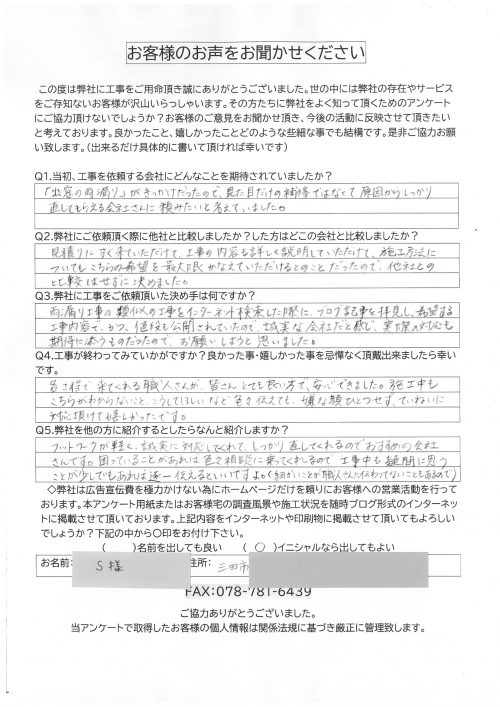 お客様のお声をお聞かせください
この度は弊社に工事をご用命頂き誠にありがとうございました。世の中には弊社の存在やサービス
をご存知ないお客様が沢山いらっしゃいます。その方たちに弊社をよく知って頂くためのアンケート
にご協力頂けないでしょうか？お客様のご意見をお聞かせ頂き、今後の活動に反映させて頂きたい
と考えております。良かったこと、嬉しかったことどのような些細な事でも結構です。是非ご協力お願
い致します。（出来るだけ具体的に書いて頂ければ幸いです）
Q1.当初、工事を依頼する会社にどんなことを期待されていましたか？
「出窓の雨漏り」がきっかけだったので、見た目だけの補修ではなくて原因からしっかり
直してもらえる会社さんに頼みたいと考えていました。
Q2.弊社にご依頼頂く際に他社と比較しましたか？した方はどこの会社と比較しましたか？
見積りにすぐ来ていただけて、工事の内容も詳しく説明していただけて、施工方法に
ついてもこちらの希望を最大限かなえていただけるとのことだったので、他社との
比較はせずに決めました。
Q3.弊社にご依頼頂いた決め手は何ですか？
雨漏り工事の類似の工事をインターネット検索した際に、ブログ記事を拝見し、希望する
工事内容で、かつ、値段も公開されていたので、誠実な会社だと感じ、実際の対応も
期待に添うものだったので、お願いしようと思いました。
Q4.工事が終わってみていかがですか？良かった事・嬉しかった事を忌憚なく頂戴出来ましたら幸い
です。
各工程で来てくれる職人さんが、皆さんとても良い方で、安心できました。施工中も
こちらがわからないこと、こうしてほしいなど色々伝えても、嫌な顔ひとつせず、ていねいに
対応頂けて嬉しかったです。
Q5.弊社を他の方に紹介するとしたらなんと紹介しますか？
フットワークが軽く、誠実に対応してくれて、しっかり直してくれるのでおすすめの会社
さんです。困っていることがあれば色々相談に乗ってくれるので、工事中も疑問に思う
ことが少しでもあれば逐一伝えるといいですよ（細かいことが職人さんに伝わってないこともあるので）
◇弊社は広告宣伝費を極力かけない為にホームページだけを頼りにお客様への営業活動を行って
おります。本アンケート用紙またはお客様宅の調査風景や施工状況を随時ブログ形式のインターネッ
トに掲載させて頂いております。上記内容をインターネットや印刷物に掲載させて頂いてもよろしい
でしょうか？下記の中から〇印をお付け下さい。
（　　）名前を出しても良い　（ ○ ）イニシャルなら出してもよい
お名前: S様 住所: 三田市
FAX:078-781-6439
ご協力ありがとうございました。
当アンケートで取得したお客様の個人情報は関係法規に基づき厳正に管理致します。